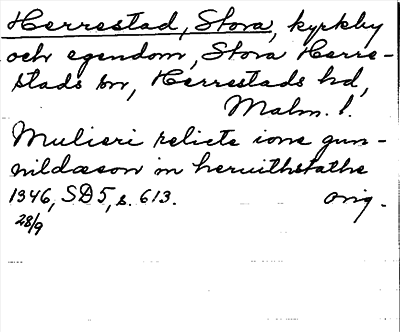 Herrestad, Stora, kyrkby
och egendom, Stora Herre-
stads sn, Herrestads hd,
Malm. l.
Mulieri relicte ions gun-
nildæson in heruithstathe
1346, SD 5, s. 613. orig.
28/9